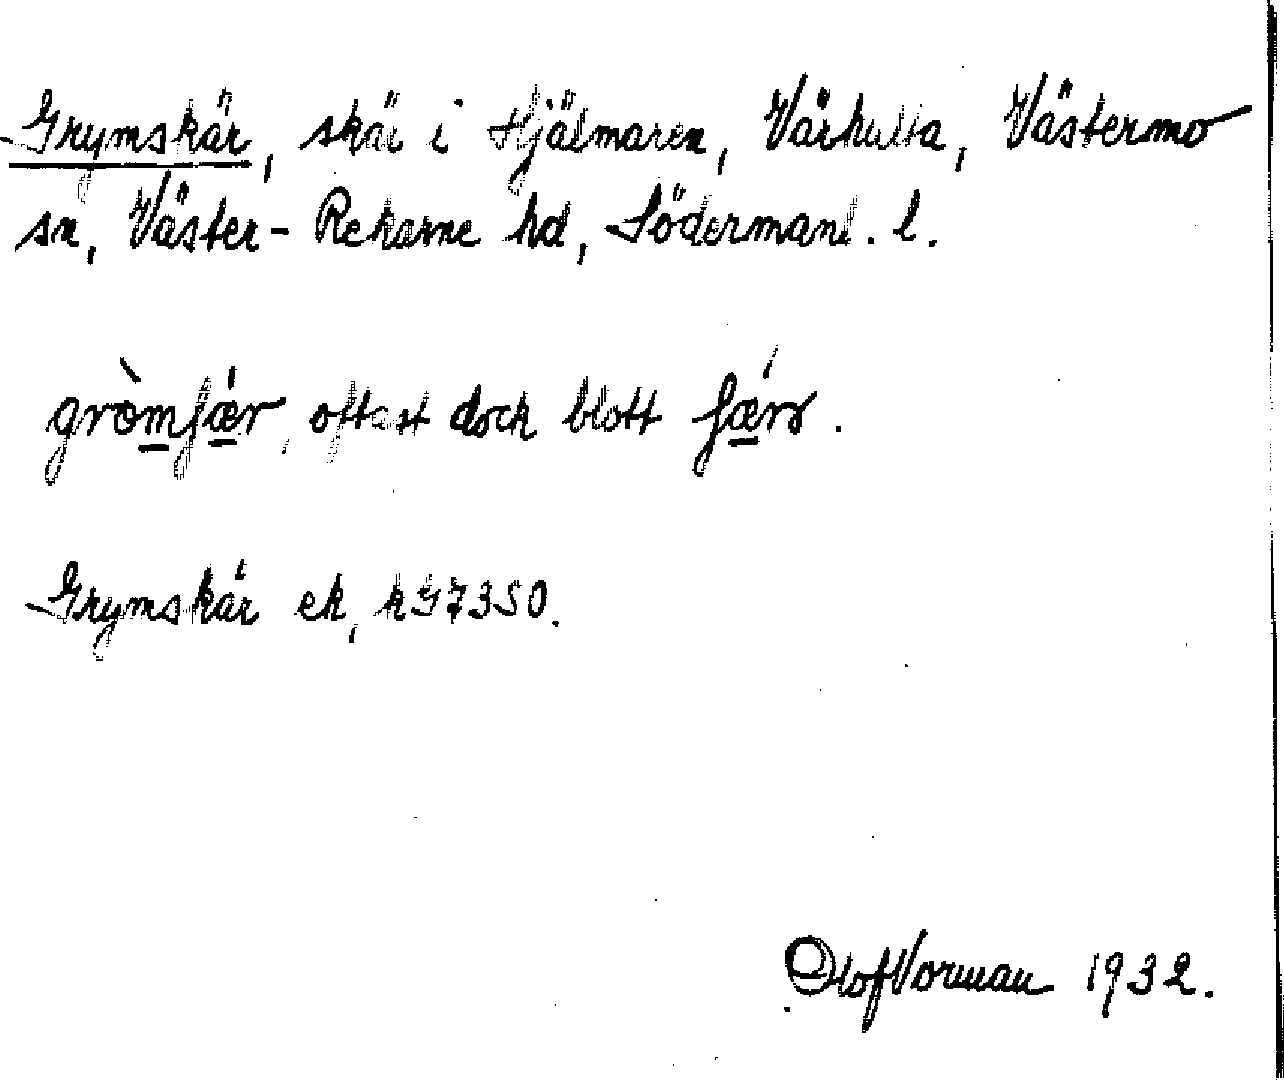 Grymskär, skär i Hjälmaren, Vårhulta, Västermo
sn, Väster-Rekarne hd, Södermanl. l.
gròmʃǽr, oftast dock blott
Grymskär ek,
Olof Vorman 1932.